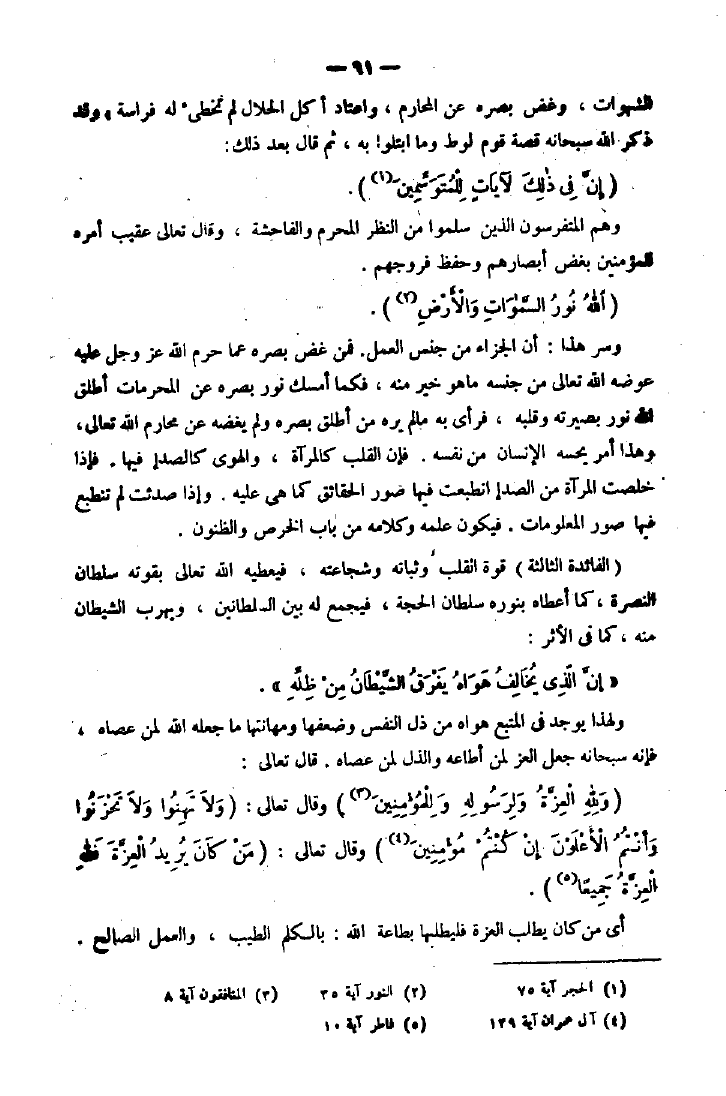 — ٩١ —
الشهوات ، وغض بصره عن المحارم ، واعتاد أكل الحلال لم تخطىء له فراسة ، وقد
ذكر الله سبحانه قصة قوم لوط وما ابتلوا به ، ثم قال بعد ذلك :
( إِنَّ فِى ذٰلِكَ لَآيَاتٍ لِلْمُتَوَسِّمِينَ (١) ) .
وهم المتفرسون الذين سلموا من النظر المحرم والفاحشة ، وقال تعالى عقيب أمره
للمؤمنين بغض أبصارهم وحفظ فروجهم .
( اللهُ نُورُ السَّمٰوَاتِ وَالْأَرْضِ (٢) ) .
وسر هذا : أن الجزاء من جنس العمل . فمن غض بصره عما حرم الله عز وجل عليه
عوضه الله تعالى من جنسه ماهو خير منه ، فكما أمسك نور بصره عن المحرمات أطلق
الله نور بصيرته وقلبه ، فرأى به مالم يره من أطلق بصره ولم يغضه عن محارم الله تعالى ،
وهذا أمر يحسه الإنسان من نفسه . فإن القلب كالمرآة ، والهوى كالصدإ فيها . فإذا
خلصت المرآة من الصدإ انطبعت فيها صور الحقائق كما هى عليه . وإذا صدئت لم تنطبع
فيها صور المعلومات . فيكون علمه وكلامه من باب الخرص والظنون .
( الفائدة الثالثة ) قوة القلب وثباته وشجاعته ، فيعطيه الله تعالى بقوته سلطان
النصرة ، كما أعطاه بنوره سلطان الحجة ، فيجمع له بين السلطانين ، ويهرب الشيطان
منه ، كما فى الأثر :
« إِنَّ الَّذِى يُخَالِفُ هَوَاهُ يَفْرَقُ الشَّيْطَانُ مِنْ ظِلِّهِ » .
ولهذا يوجد فى المتبع هواه من ذل النفس وضعفها ومهانتها ما جعله الله لمن عصاه ،
فإنه سبحانه جعل العز لمن أطاعه والذل لمن عصاه . قال تعالى :
( وَلِلهِ الْعِزَّةُ وَلِرَسُولِهِ وَلِلْمُؤْمِنِينَ (٣) ) وقال تعالى : ( وَلَا تَهِنُوا وَلَا تَحْزَنُوا
وَأَنْتُمُ الْأَعْلَوْنَ إِنْ كُنْتُمْ مُؤْمِنِينَ (٤) ) وقال تعالى : ( مَنْ كَانَ يُرِيدُ الْعِزَّةَ فَلِلهِ
الْعِزَّةُ جَمِيعًا (٥) ) .
أى من كان يطلب العزة فليطلبها بطاعة الله : بالكلم الطيب ، والعمل الصالح .
(١) الحجر آية ٧٥ (٢) النور آية ٣٥ (٣) المنافقون آية ٨
(٤) آل عمران آية ١٣٩ (٥) فاطر آية ١٠